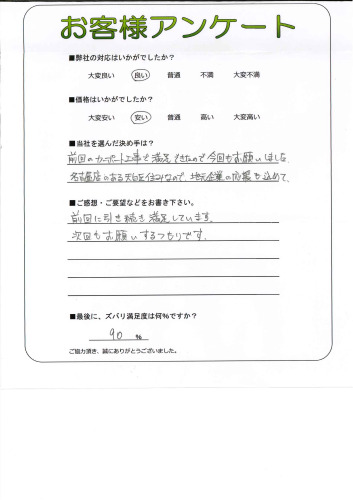 お客様アンケート
■弊社の対応はいかがでしたか？
大変良い 良い 普通 不満 大変不満
■価格はいかがでしたか？
大変安い 安い 普通 高い 大変高い
■当社を選んだ決め手は？
前回のカーポート工事で満足できたので今回もお願いしました
名古屋店のある天白区住みなので、地元企業の応援も込めて、
■ご感想・ご要望などをお書き下さい。
前回に引き続き満足しています。
次回もお願いするつもりです。
■最後に、ズバリ満足度は何%ですか？
90 %
ご協力頂き、誠にありがとうございました。